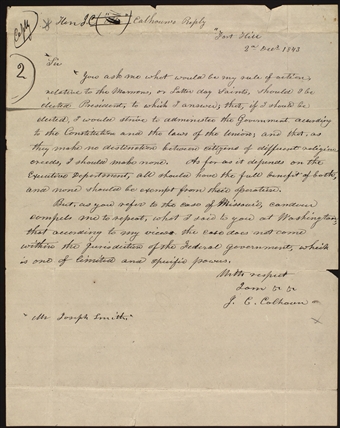 Copy
Hon J. C. Calhouns Reply
2
"Fort Hill
2nd Decr 1843
"Sir
"You ask me what would be my rule of action
relative to the Mormons, or Latter day Saints, should I be
elected President; to which I answer; that, if I should be
elected, I would strive to administer the Government according
to the Constitution and the laws of the Union; and that, as
they make no distinction between citizens of different religious
creeds, I should make none. As far as it depends on the
Executive Department, all should have the full benefit of both,
and none should be exempt from their operation.
But, as you refer to the case of Missouri, candour
compels me to repeat, what I said to you at Washington;
that according to my views the case does not come
within the Jurisdiction of the Federal Government, which
is one of limited and specific powers.
With respect
I am &c &c
J. C. Calhoun
"Mr Joseph Smith."